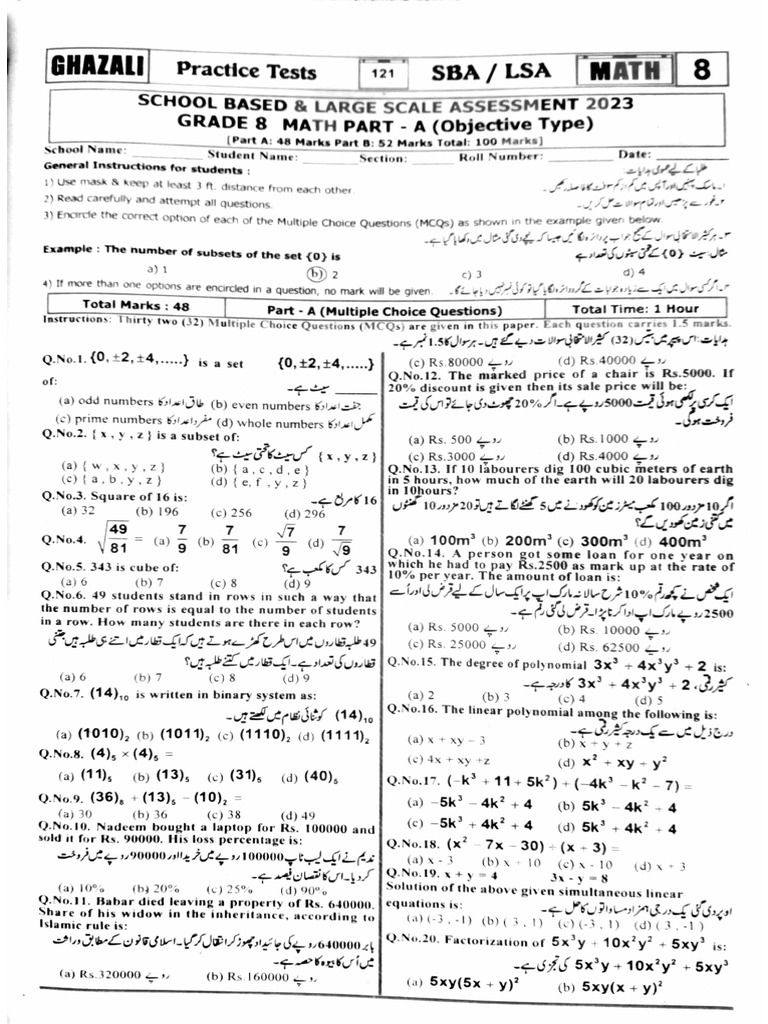 GHAZALI Practice Tests 121 SBA / LSA MATH 8
SCHOOL BASED & LARGE SCALE ASSESSMENT 2023
GRADE 8 MATH PART - A (Objective Type)
[Part A: 48 Marks Part B: 52 Marks Total: 100 Marks]
School Name: Student Name: Section: Roll Number: Date:
General Instructions for students :
طلبا کے لیے عمومی ہدایات:
1) Use mask & keep at least 3 ft. distance from each other.
۱۔ ماسک پہنیں اور آپس میں کم از کم 3 فٹ کا فاصلہ رکھیں۔
2) Read carefully and attempt all questions.
۲۔ غور سے پڑھیں اور تمام سوالات حل کریں۔
3) Encircle the correct option of each of the Multiple Choice Questions (MCQs) as shown in the example given below.
۳۔ ہر کثیر الانتخابی سوال کے صحیح جواب پر دائرہ لگائیں جیسا کہ نیچے دی گئی مثال میں دکھایا گیا ہے۔
Example : The number of subsets of the set {0} is
مثال: سیٹ {0} کے تحتی سیٹوں کی تعداد ہے
a) 1 (b) 2 c) 3 d) 4
4) If more than one options are encircled in a question, no mark will be given.
۴۔ اگر کسی سوال میں ایک سے زیادہ جوابات کے گرد دائرہ لگایا گیا تو کوئی نمبر نہیں دیا جائے گا۔
Total Marks : 48 Part - A (Multiple Choice Questions) Total Time: 1 Hour
Instructions: Thirty two (32) Multiple Choice Questions (MCQs) are given in this paper. Each question carries 1.5 marks.
ہدایات: اس پیپر میں بتیس (32) کثیر الانتخابی سوالات دیے گئے ہیں۔ ہر سوال کا 1.5 نمبر ہے۔
Q.No.1. {0, ±2, ±4, .....} is a set {0, ±2, ±4, .....}
of: سیٹ ہے۔
(a) odd numbers طاق اعداد کا (b) even numbers جفت اعداد کا
(c) prime numbers مفرد اعداد کا (d) whole numbers مکمل اعداد کا
Q.No.2. { x , y , z } is a subset of:
{ x , y , z } کس سیٹ کا تحتی سیٹ ہے؟
(a) { w , x , y , z } (b) { a , c , d , e }
(c) { a , b , y , z } (d) { e , f , y , z }
Q.No.3. Square of 16 is: 16 کا مربع ہے۔
(a) 32 (b) 196 (c) 256 (d) 296
Q.No.4. √(49/81) = (a) 7/9 (b) 7/81 (c) √7/9 (d) 7/√9
Q.No.5. 343 is cube of: 343 کس کا مکعب ہے؟
(a) 6 (b) 7 (c) 8 (d) 9
Q.No.6. 49 students stand in rows in such a way that
the number of rows is equal to the number of students
in a row. How many students are there in each row?
49 طلبہ قطاروں میں اس طرح کھڑے ہوتے ہیں کہ ایک قطار میں اتنے ہی طلبہ ہیں جتنی
قطاروں کی تعداد ہے۔ ایک قطار میں کتنے طلبہ ہیں؟
(a) 6 (b) 7 (c) 8 (d) 9
Q.No.7. (14)₁₀ is written in binary system as:
(14)₁₀ کو ثنائی نظام میں لکھتے ہیں۔
(a) (1010)₂ (b) (1011)₂ (c) (1110)₂ (d) (1111)₂
Q.No.8. (4)₅ × (4)₅ =
(a) (11)₅ (b) (13)₅ (c) (31)₅ (d) (40)₅
Q.No.9. (36)₈ + (13)₅ − (10)₂ =
(a) 30 (b) 36 (c) 38 (d) 49
Q.No.10. Nadeem bought a laptop for Rs. 100000 and
sold it for Rs. 90000. His loss percentage is:
ندیم نے ایک لیپ ٹاپ 100000 روپے میں خریدا اور 90000 روپے میں فروخت
کر دیا۔ اس کا نقصان فیصد ہے۔
(a) 10% (b) 20% (c) 25% (d) 90%
Q.No.11. Babar died leaving a property of Rs. 640000.
Share of his widow in the inheritance, according to
Islamic rule is:
بابر 640000 روپے کی جائیداد چھوڑ کر انتقال کر گیا۔ اسلامی قانون کے مطابق وراثت
میں اُس کا بیوہ کا حصہ ہے۔
(a) Rs.320000 روپے (b) Rs.160000 روپے
(c) Rs.80000 روپے (d) Rs.40000 روپے
Q.No.12. The marked price of a chair is Rs.5000. If
20% discount is given then its sale price will be:
ایک کرسی پر لکھی ہوئی قیمت 5000 روپے ہے۔ اگر 20% چھوٹ دی جائے تو اس کی قیمت
فروخت ہوگی۔
(a) Rs. 500 روپے (b) Rs.1000 روپے
(c) Rs.3000 روپے (d) Rs.4000 روپے
Q.No.13. If 10 labourers dig 100 cubic meters of earth
in 5 hours, how much of the earth will 20 labourers dig
in 10hours?
اگر 10 مزدور 100 مکعب میٹر زمین کو کھودنے میں 5 گھنٹے لگاتے ہیں تو 20 مزدور 10 گھنٹوں
میں کتنی زمین کھودیں گے؟
(a) 100m³ (b) 200m³ (c) 300m³ (d) 400m³
Q.No.14. A person got some loan for one year on
which he had to pay Rs.2500 as mark up at the rate of
10% per year. The amount of loan is:
ایک شخص نے کچھ رقم 10% شرح سالانہ مارک اپ پر ایک سال کے لیے قرض لی اور اُسے
2500 روپے مارک اپ ادا کرنا پڑا۔ قرض لی گئی رقم ہے۔
(a) Rs. 5000 روپے (b) Rs. 10000 روپے
(c) Rs. 25000 روپے (d) Rs. 62500 روپے
Q.No.15. The degree of polynomial 3x³ + 4x³y³ + 2 is:
کثیر رقمی، 3x³ + 4x³y³ + 2 کا درجہ ہے۔
(a) 2 (b) 3 (c) 4 (d) 5
Q.No.16. The linear polynomial among the following is:
درج ذیل میں سے یک درجی کثیر رقمی ہے۔
(a) x + xy − 3 (b) x + y + z
(c) 4x + xy +z (d) x² + xy + y²
Q.No.17. (−k³ + 11 + 5k²) + (−4k³ − k² − 7) =
(a) −5k³ − 4k² + 4 (b) 5k³ − 4k² + 4
(c) −5k³ + 4k² + 4 (d) 5k³ + 4k² + 4
Q.No.18. (x² − 7x − 30) ÷ (x + 3) =
(a) x - 3 (b) x + 10 (c) x - 10 (d) x + 3
Q.No.19. x + y = 4 3x - y = 8
Solution of the above given simultaneous linear
equations is: اوپر دی گئی یک درجی ہمزاد مساواتوں کا حل ہے۔
(a) (-3 , -1) (b) ( 3 , 1) (c) (-3 , 1) (d) ( 3 , -1 )
Q.No.20. Factorization of 5x³y + 10x²y² + 5xy³ is:
5x³y + 10x²y² + 5xy³ کی تجزی ہے۔
(a) 5xy(5x + y)² (b) 5xy(x + y)²